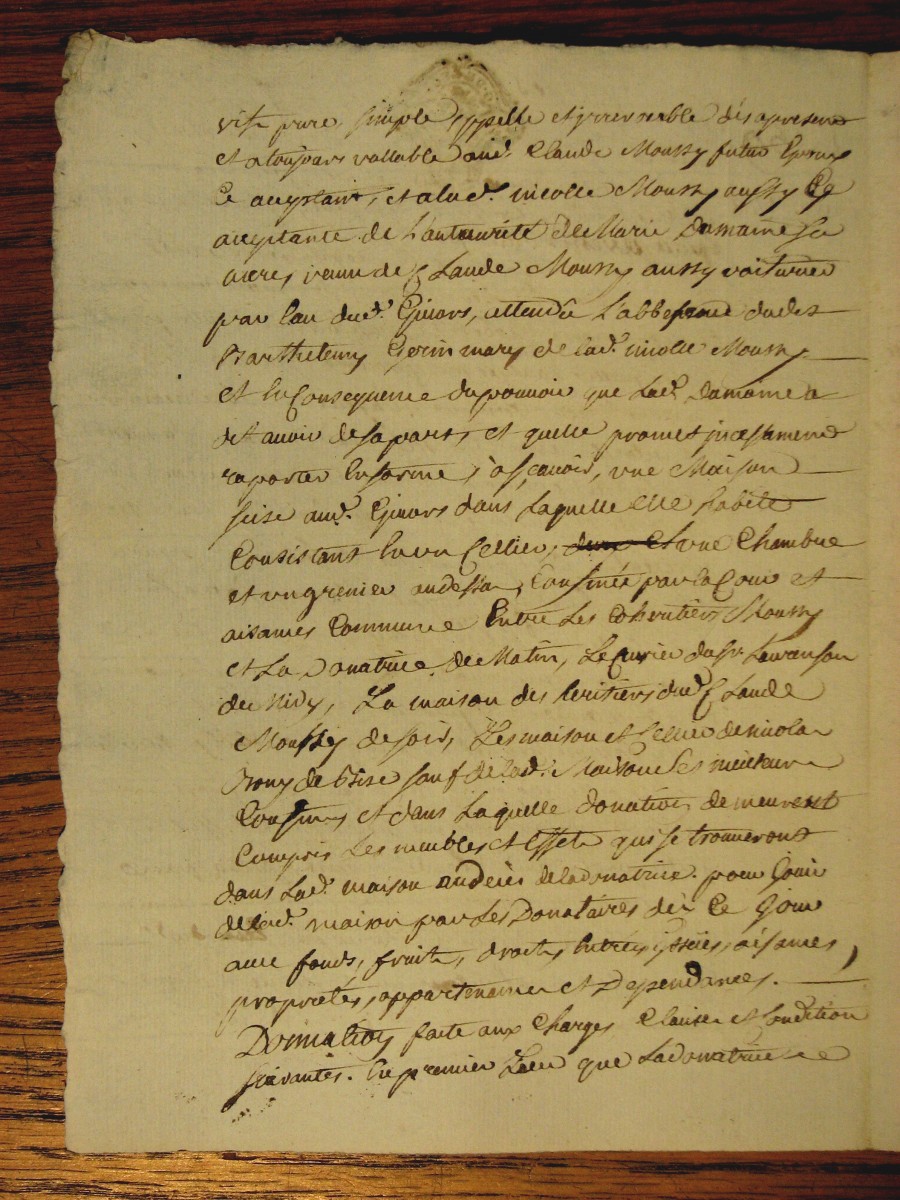 vifs pure simple, et irrevocable dés apresent
et a toujours vallable aud. Claude Moussy futur Epoux
Ce acceptant, et alad. nicolle Moussy aussy Ce
acceptante de l'autaurité de Marie Damaine Sa
meres veuve de Claude Moussy aussy voiturier
par Eau dud. Givors, attendû l'abbsence dudit
Barthelemy Gerin mary de lad. nicolle Moussy
et En Consequence du pouvoir que Lad. Damaine a
dit avoir de sa part, et quelle promet incessament
raporter En forme, à sçavoir, une Maison
scise aud. Givors dans Laquelle elle habite
Consistant En un Cellier, et une Chambre
et un grenier au dessus, Confinée par la Cour et
aisances Commune Entre Les Coheritiers Moussy
et La Donatrice de Matin, Le Cuvier du Sr.
de, La maison des heritiers dud. Claude
Moussy de soir, Les maison et Cellier de nicolas
de Bise sauf de lad. Maison Ses meilleurs
Confins, et dans Laquelle donation demeurent
Compris Les meubles et Effets qui se trouveront
dans Lad. maison au décès de la donatrice. pour Jouir
de lad. maison par Les Donataires dès Ce Jour
avec fonds, fruits, droits, Entrées, issües, aisances,
proprietés, appartenances et Dependances.
Donnation faite aux Charges Clauses et Condition
suivantes. En premier Lieu que La donatrice se